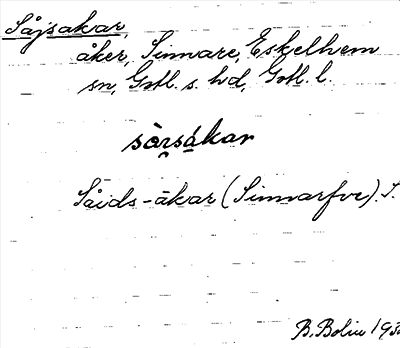 Såjsakar,
åker, Sinnare, Eskelhem
sn, Gotl. s. hd, Gotl. l.
sàrsákar
Såids-åkar (Sinnarfve). S.
B. Bolin